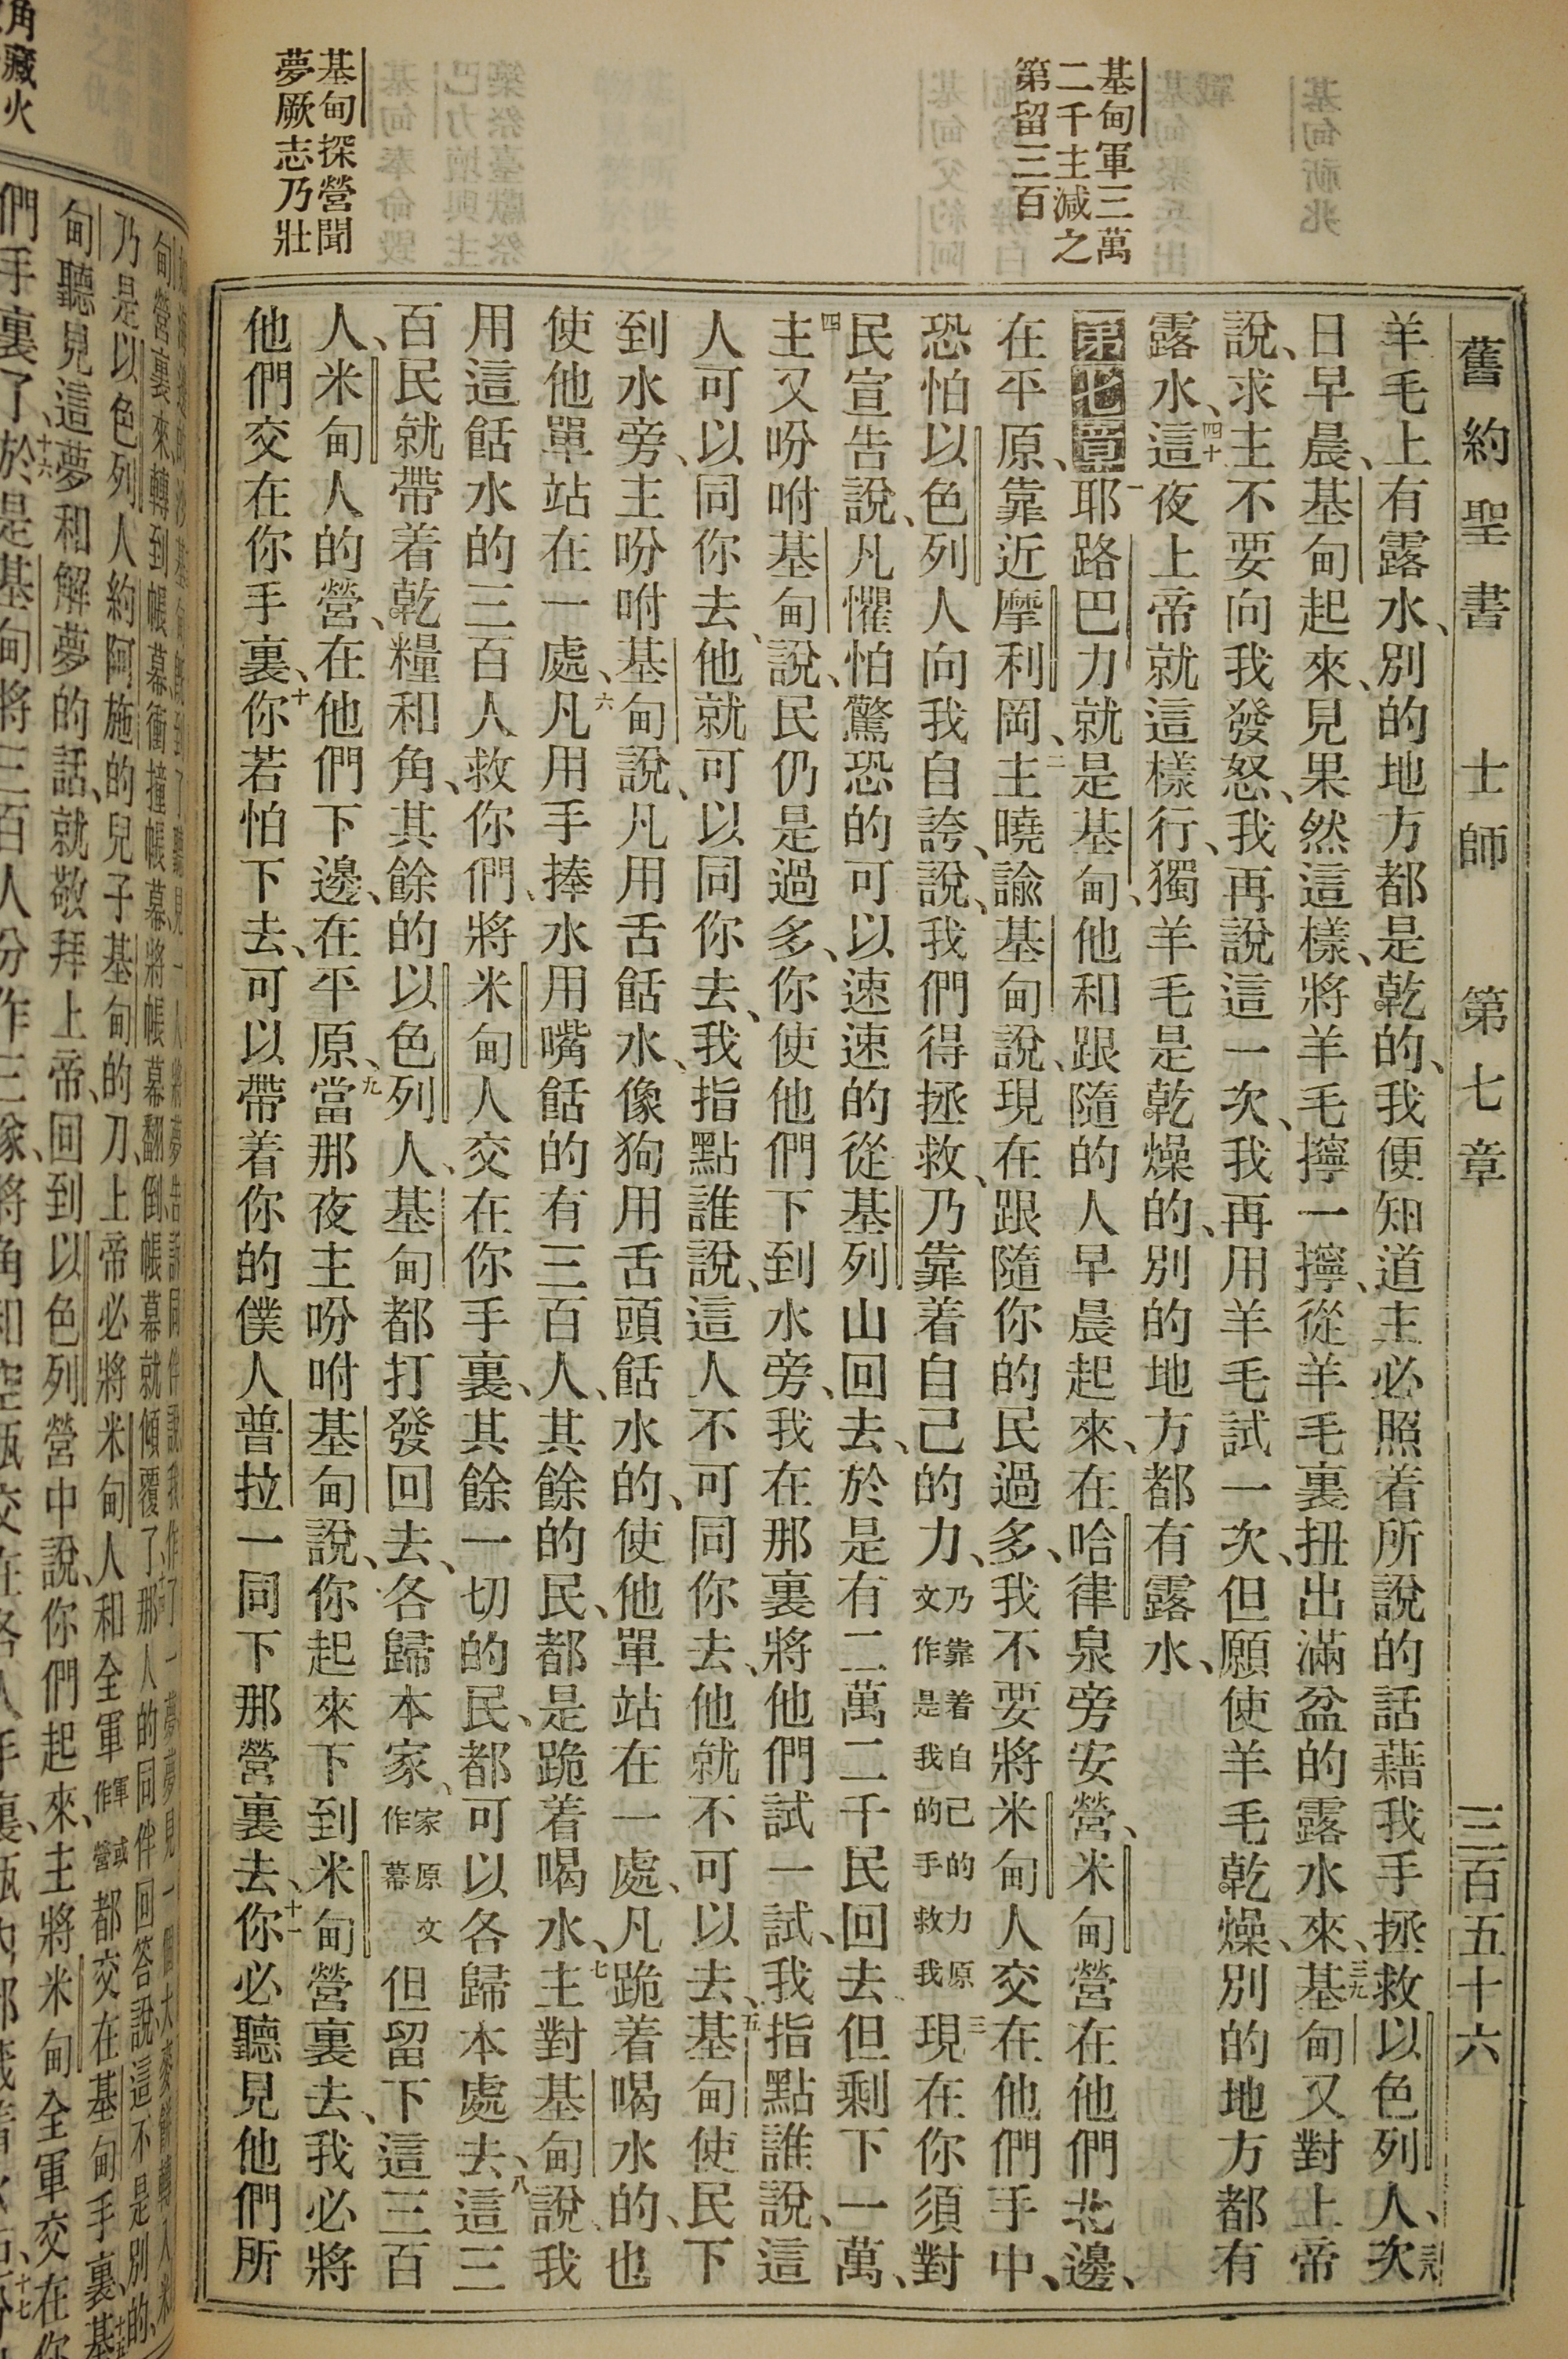 舊約聖書 士師 第七章 三百五十六
基甸軍三萬
二千主減之
第留三百
基甸探營聞
夢厥志乃壯
羊毛上有露水、別的地方都是乾的、我便知道主必照着所說的話藉我手拯救以色列人、次
日早晨、基甸起來、見果然這樣、將羊毛擰一擰、從羊毛裏扭出滿盆的露水來、三九基甸又對上帝
說、求主不要向我發怒、我再說這一次、我再用羊毛試一次、但願使羊毛乾燥、別的地方都有
露水、四十這夜上帝就這樣行、獨羊毛是乾燥的、別的地方都有露水、
第七章一耶路巴力就是基甸、他和跟隨的人早晨起來、在哈律泉旁安營、米甸營在他們北邊、
在平原、靠近摩利岡、二主曉諭基甸說、現在跟隨你的民過多、我不要將米甸人交在他們手中、
恐怕以色列人向我自誇、說、我們得拯救、乃靠着自己的力、乃靠着自己的力原文作是我的手救我三現在你須對
民宣告說、凡懼怕驚恐的可以速速的從基列山回去、於是有二萬二千民回去但剩下一萬、
四主又吩咐基甸說、民仍是過多、你使他們下到水旁、我在那裏將他們試一試、我指點誰說、這
人可以同你去、他就可以同你去、我指點誰說、這人不可同你去、他就不可以去、五基甸使民下
到水旁、主吩咐基甸說、凡用舌餂水、像狗用舌頭餂水的、使他單站在一處、凡跪着喝水的、也
使他單站在一處、六凡用手捧水用嘴餂的有三百人、其餘的民、都是跪着喝水、七主對基甸說、我
用這餂水的三百人救你們、將米甸人交在你手裏、其餘一切的民、都可以各歸本處去、八這三
百民就帶着乾糧和角、其餘的以色列人、基甸都打發回去、各歸本家、家原文作幕但留下這三百
人、米甸人的營、在他們下邊、在平原、九當那夜主吩咐基甸說、你起來下到米甸營裏去、我必將
他們交在你手裏、十你若怕下去、可以帶着你的僕人普拉一同下那營裏去、十一你必聽見他們所
乃是以色列人約阿施的兒子基甸的刀、上帝必將米甸人和全軍軍或作營都交在基甸手裏、基
甸聽見這夢和解夢的話、就敬拜上帝、回到以色列營中說、你們起來、主將米甸全軍交在你
們手裏了、十六於是基甸將三百人分作三隊、將角和空瓶交在各人手裏、
角藏火